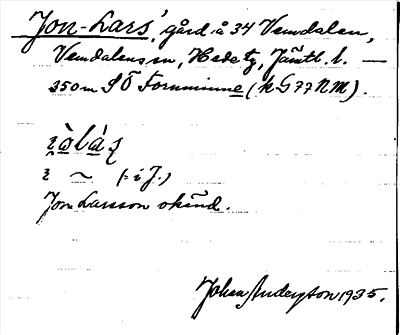 Jon-Lars', gård å 34 Vemdalen,
Vemdalens sn, Hede tg, Jämtl. l. —
350 m S Ö Fornminne (k G 77 N M).
i ~ (: i J.)
Jon Larsson okänd.
Johan Anderzson 1935.